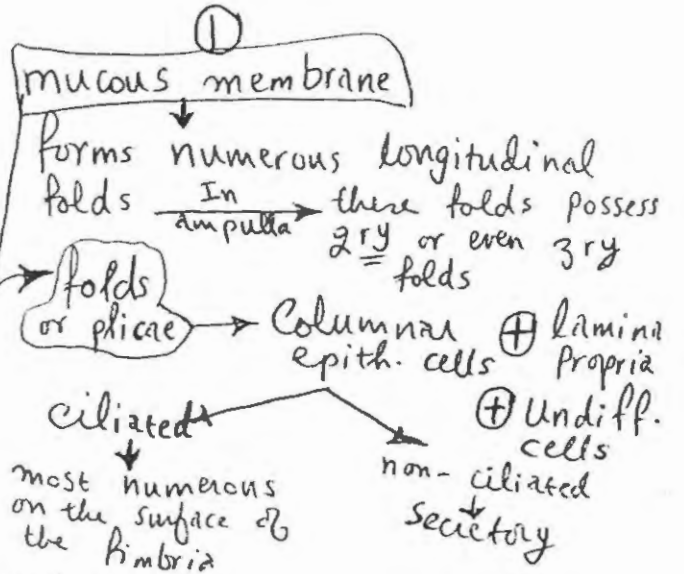 1
mucous membrane
forms numerous longitudinal
folds In ampulla these folds possess
2ry or even 3ry
folds
folds
or plicae
Columnar
epith. cells
+ lamina
Propria
+ Undiff.
cells
ciliated
most numerous
on the surface of
the fimbria
non-ciliated
secretory